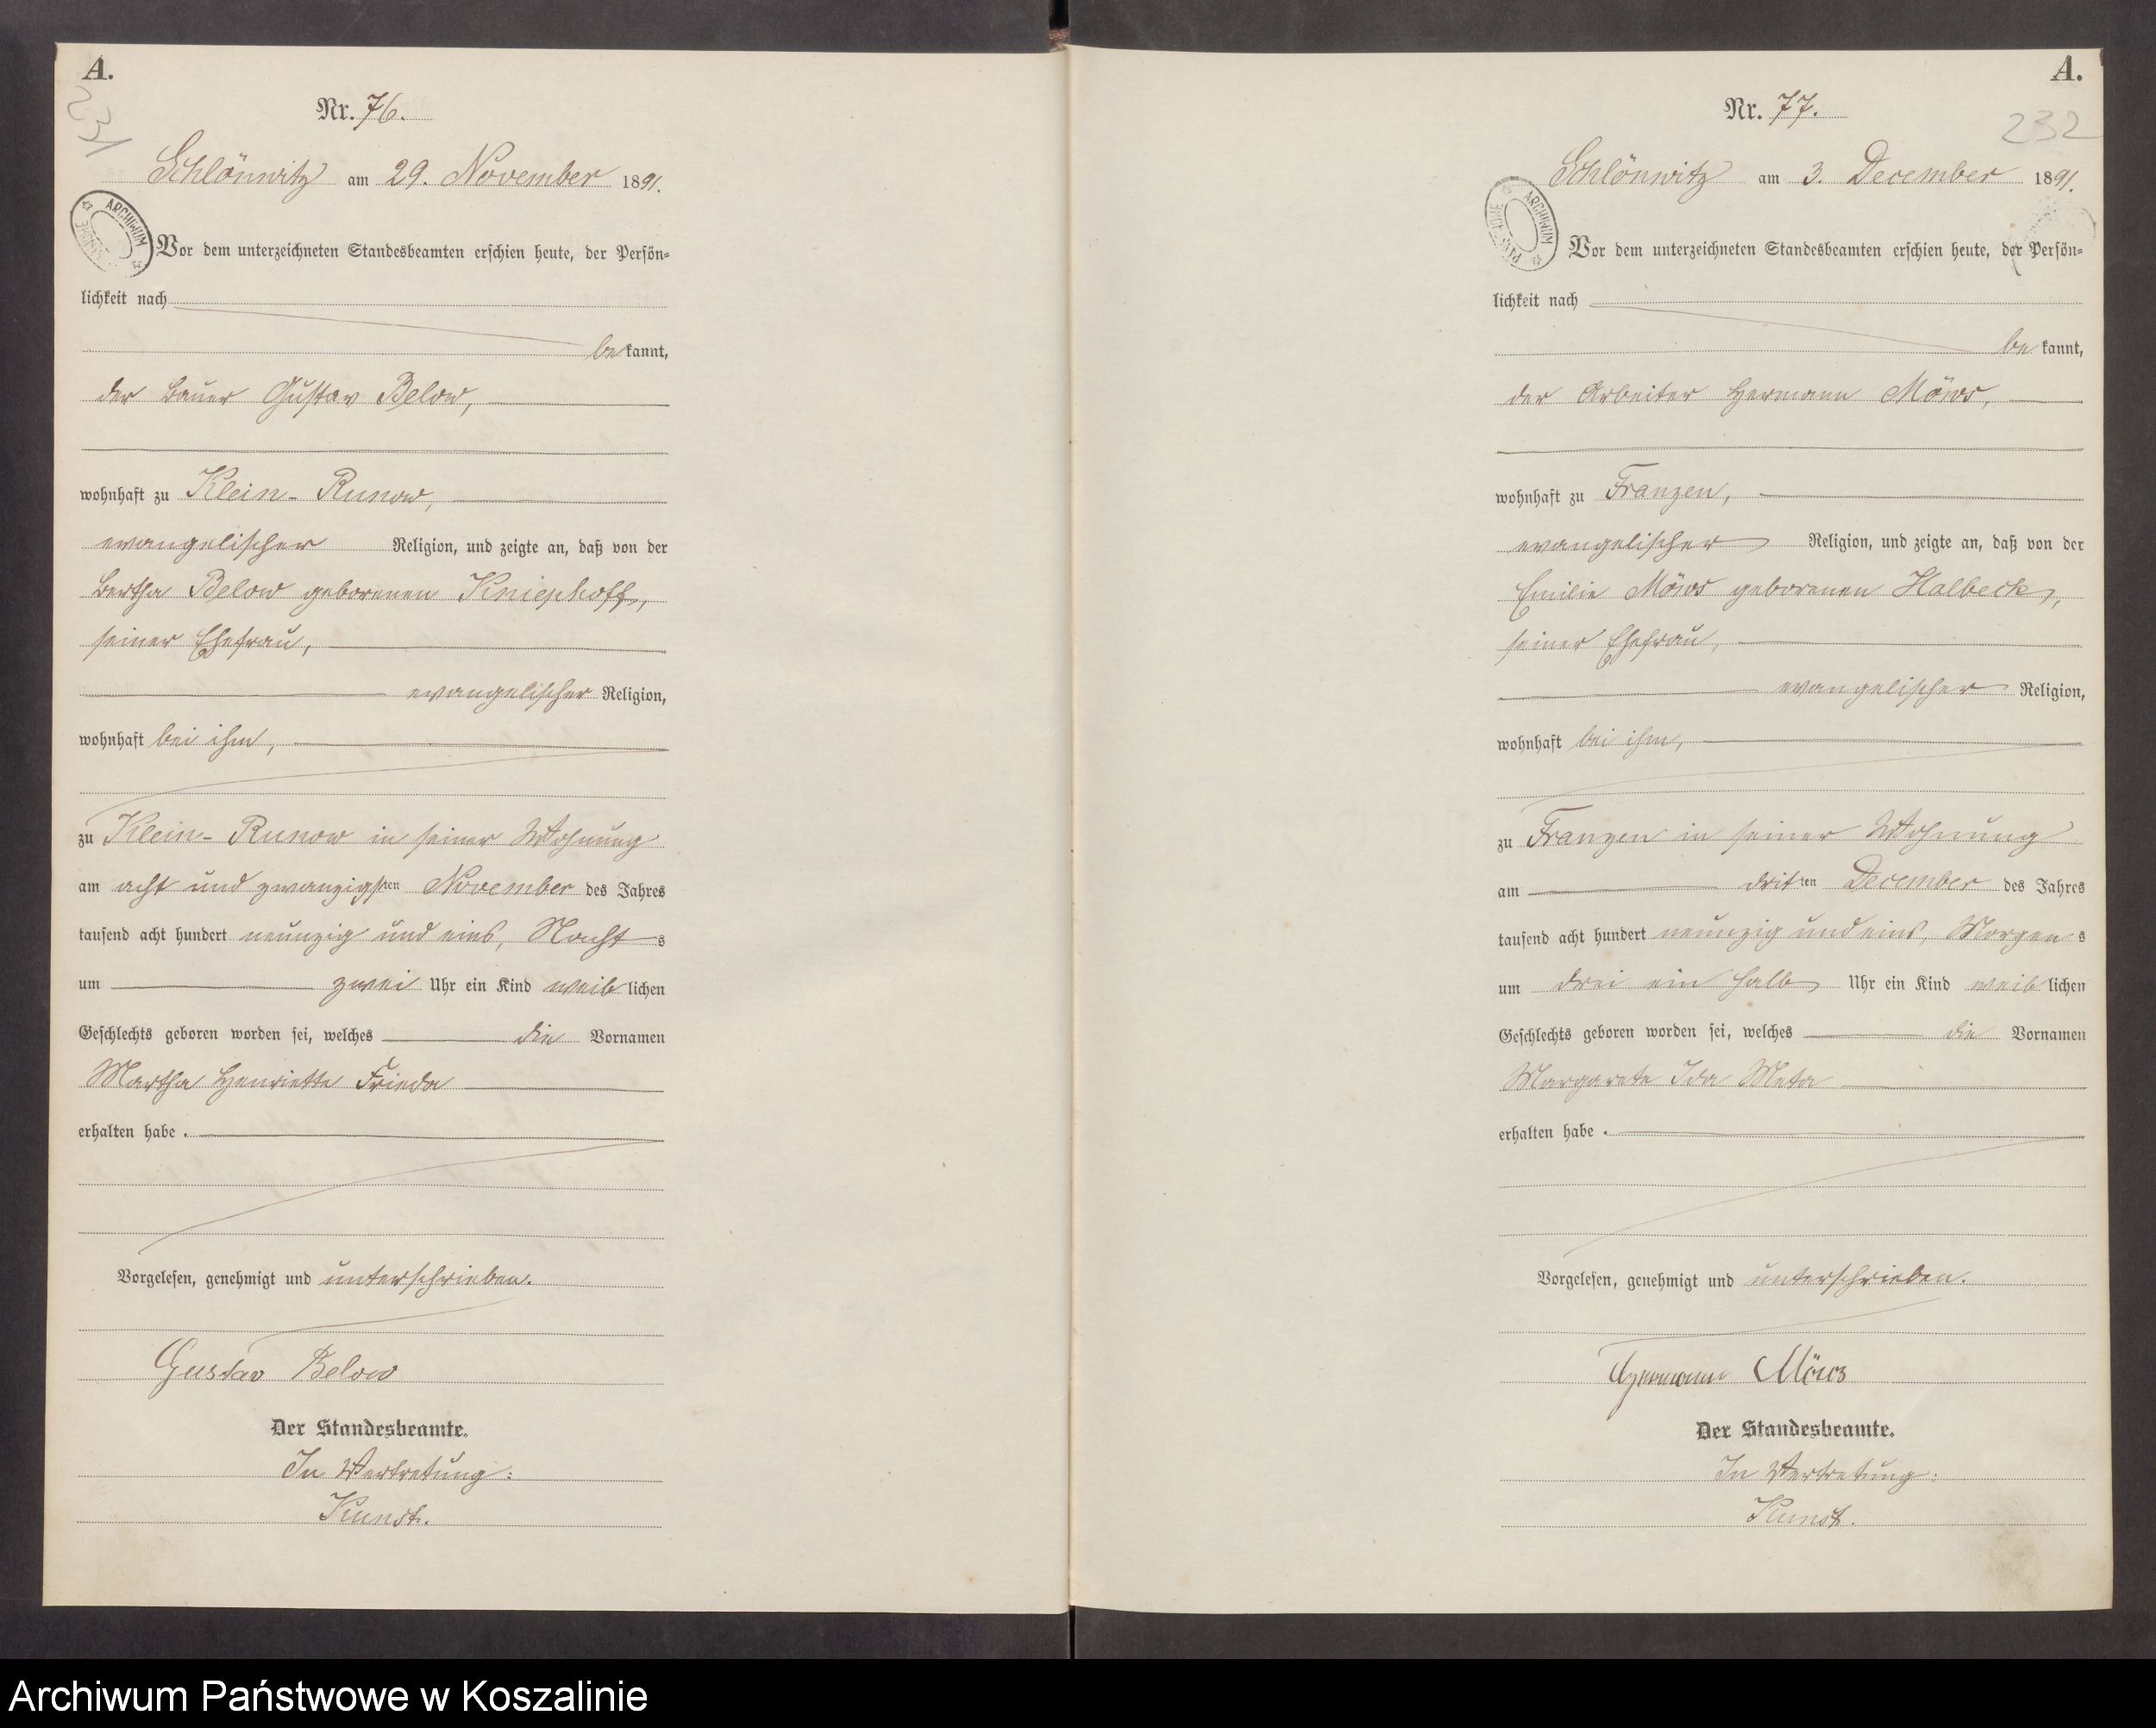 A.
231
Nr. 76.
Schlönwitz am 29. November 1891.
ARCHIWUM
Vor dem unterzeichneten Standesbeamten erschien heute, der Persön-
lichkeit nach
bekannt,
der Bauer Gustav Below,
wohnhaft zu Klein-Runow,
evangelischer Religion, und zeigte an, daß von der
Bertha Below geborenen Kniephoff,
seiner Ehefrau,
evangelischer Religion,
wohnhaft bei ihm,
zu Klein-Runow in seiner Wohnung
am acht und zwanzigsten November des Jahres
tausend acht hundert neunzig und eins, Nachts
um zwei Uhr ein Kind weiblichen
Geschlechts geboren worden sei, welches die Vornamen
Martha Henriette Frieda
erhalten habe.
Vorgelesen, genehmigt und unterschrieben.
Gustav Below
Der Standesbeamte.
In Vertretung:
Kunst.
A.
232
Nr. 77.
Schlönwitz am 3. December 1891.
ARCHIWUM
Vor dem unterzeichneten Standesbeamten erschien heute, der Persön-
lichkeit nach
bekannt,
der Arbeiter Hermann Möws,
wohnhaft zu Franzen,
evangelischer Religion, und zeigte an, daß von der
Emilie Möws geborenen Halbeck,
seiner Ehefrau,
evangelischer Religion,
wohnhaft bei ihm,
zu Franzen in seiner Wohnung
am dritten December des Jahres
tausend acht hundert neunzig und eins, Morgens
um drei ein halb Uhr ein Kind weiblichen
Geschlechts geboren worden sei, welches die Vornamen
Margarete Ida Meta
erhalten habe.
Vorgelesen, genehmigt und unterschrieben.
Hermann Möws
Der Standesbeamte.
In Vertretung:
Kunst.
Archiwum Państwowe w Koszalinie